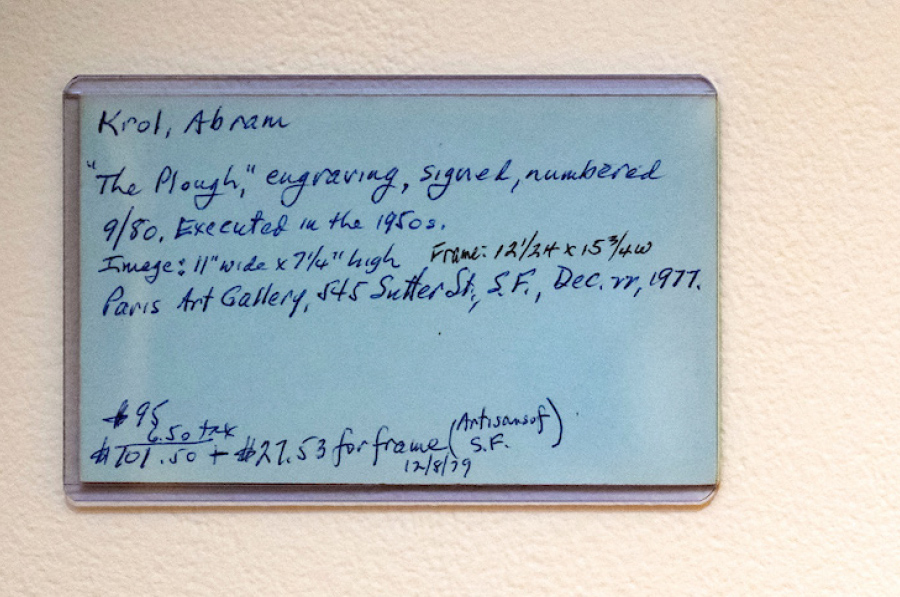 Krol, Abram
"The Plough," engraving, signed, numbered
9/80. Executed in the 1950s.
Image: 11" wide x 7 1/4" high Frame: 12 1/2H x 15 3/4W
Paris Art Gallery, 545 Sutter St., S.F., Dec. 22, 1977.
$95
6.50 tax
$101.50 + $27.53 for frame (Artisans of S.F.)
12/8/79